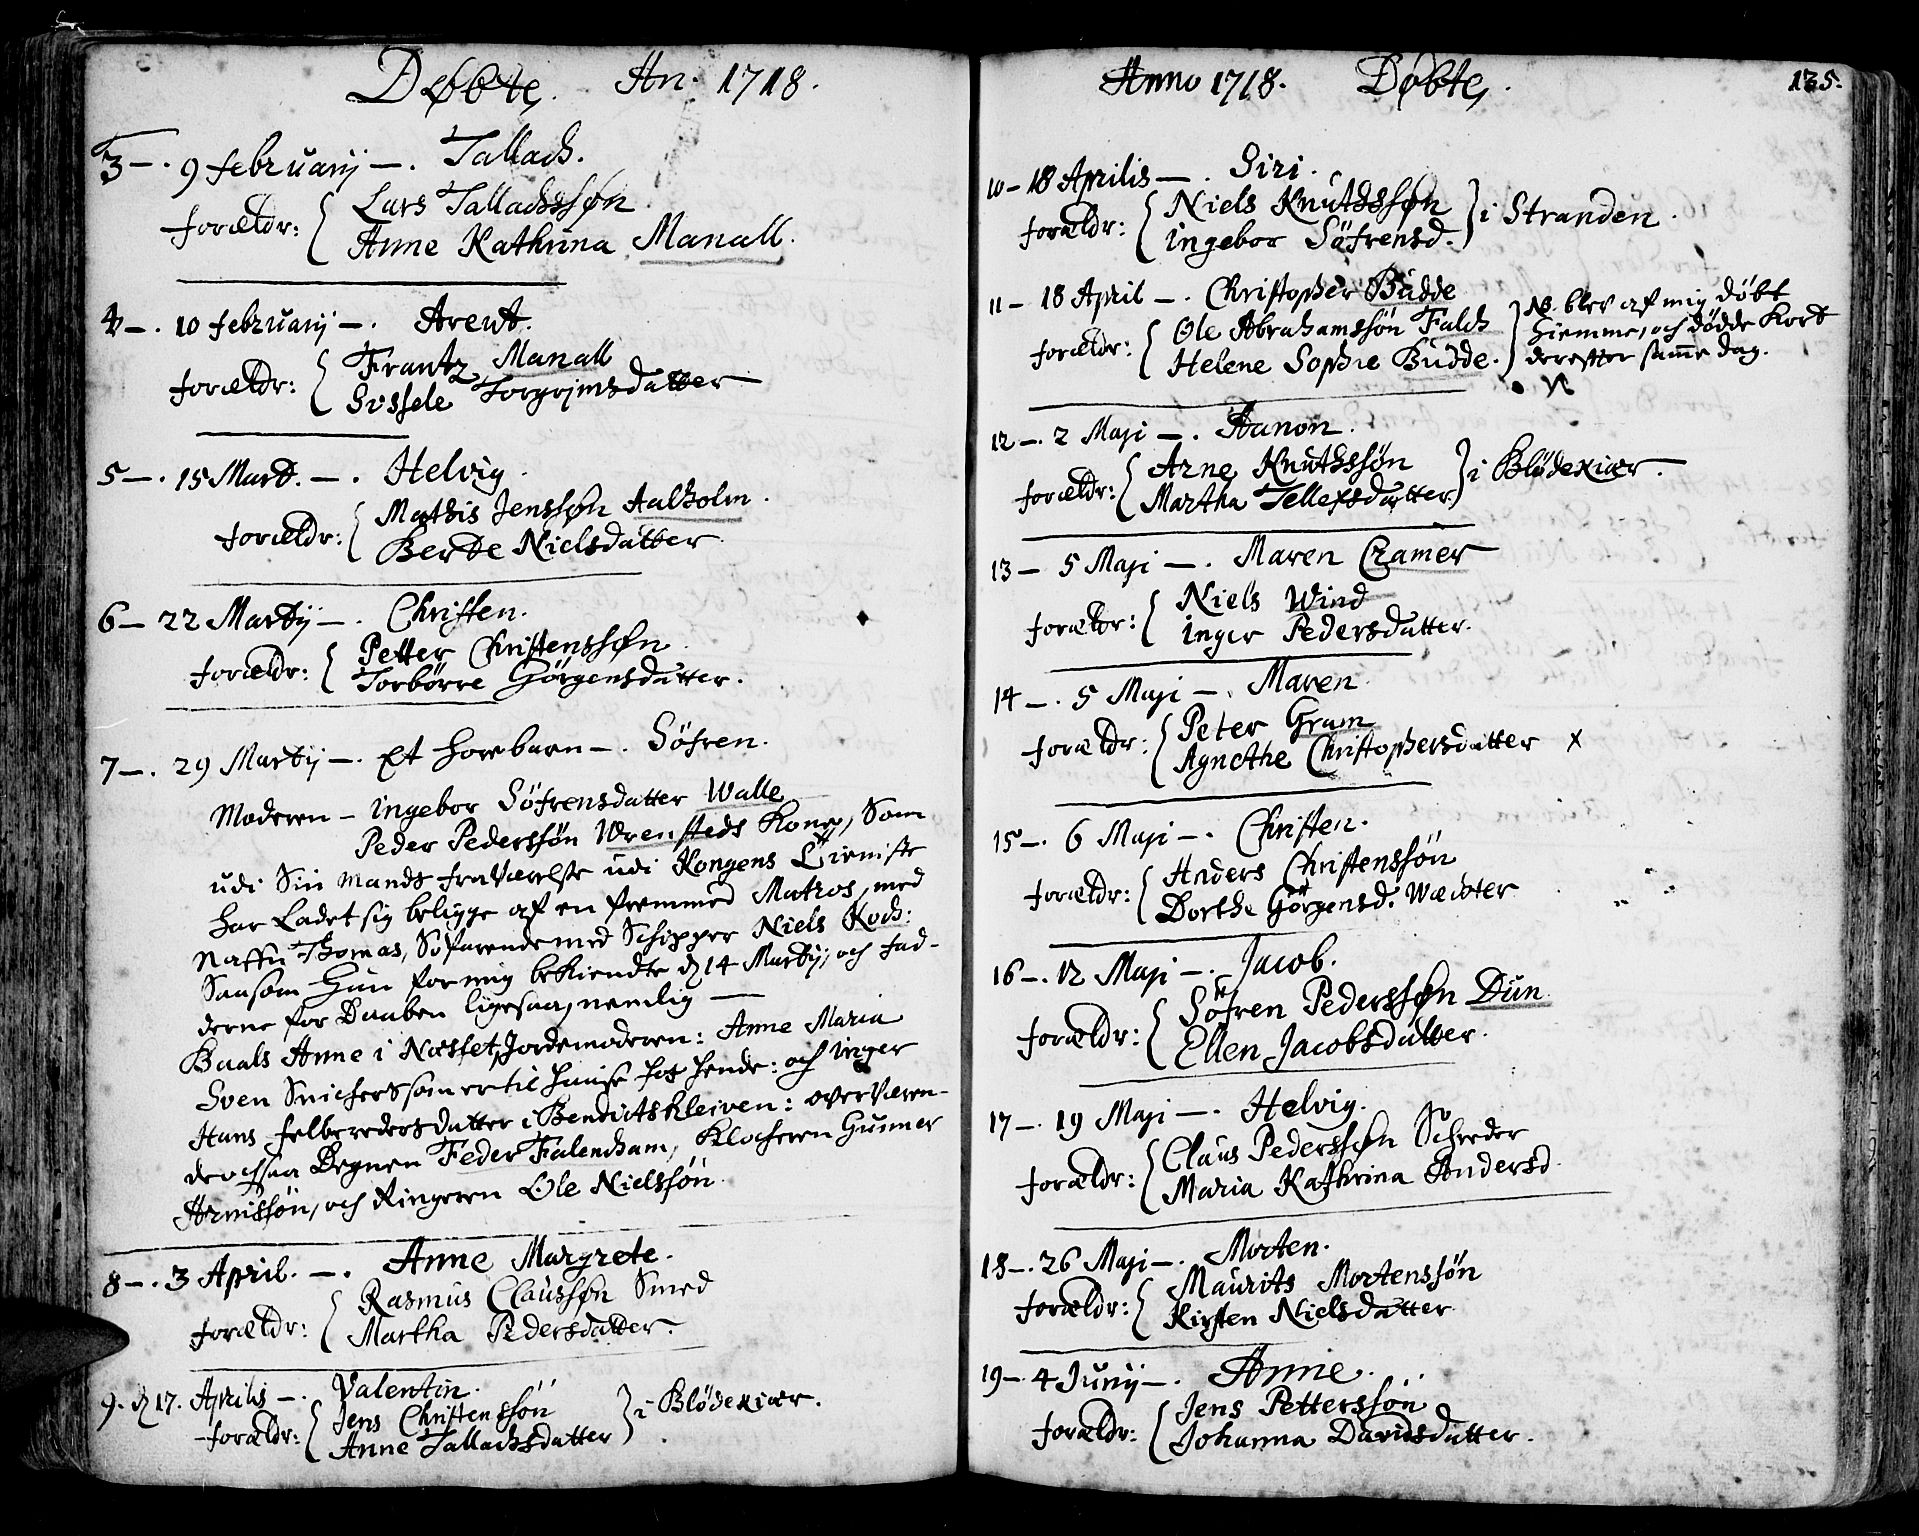 Døbte. An. 1718.
3 –. 9 februarij –. Tallach.
foræLdr: { Lars Tallachssøn.
Anne Kathrina Manall.
4 –. 10 februarij –. Arent.
foræLdr: { Frantz Manall
Sossele Torgrimsdatter
5 –. 15 Mart. –. Helvig.
foræLdr: { Mathis Jenssøn Aalholm.
Berte Nielsdatter
6 – 22 Martij –. Christen.
foræLdr: { Petter Christenssøn.
Torbörre Görgensdatter.
7 –. 29 Martij –. Et horebarn –. Söfren.
Moderen – ingebor Söfrensdatter Walle
Peder Pederssön Wrensteds Kone, som
udi sin mands fraværelse udi Kongens Tieniste
har Ladet sig beligge af en fremmed Matros, med
Naffn Thomas, Söfarende med Schipper Niels Koch:
Saasom hun for mig bekiendte d 14 Martij, och fad-
derne for Daaben ligesaa, nemlig –
Baals Anne i Næsset, Jordemoderen: Anne Maria
Sven Snichers som er til huuse hos hende: och inger
Hans felberedersdatter i Bendictskleiven: overværen-
de ochsaa Degnen Feder Falencham, Klocheren Gunner
Arnissön, och Ringeren Ole Nielssön
8 –. 3 April. –. Anne Margrete.
foræLdr: { Rasmus Claussøn Smed
Martha Pedersdatter.
9. d 17. Aprilis –. Valentin.
foræLdr: { Jens Christenssön
Anne Tallachsdatter } i Blödekiær.
Anno 1718. Døbte. 135.
10 – 18 Aprilis –. Siri.
foræLdr: { Niels Knutdssøn
ingebor Söfrensd. } i Stranden.
11 – 18 April –. Christopher Budde
foræLdr: { Ole Abrahamssön Falch
Helene Sophie Budde. } NB. blev af mig döbt
hiemme, och dödde Kort
dereffter samme dag.
12 –. 2 Maji –. Aanon.
foræLdr: { Arne Knuthssön
Martha Tellefsdatter } i Blödekiær.
13 – 5 Maji –. Maren Cramer
foræLdr: { Niels Wind
inger Pedersdatter.
14 –. 5 Maji –. Maren.
foræLdr: { Peter Gram
Agnethe Christophersdatter x
15 –. 6 Maji –. Christen.
foræLdr: { Anders Christenssön
Dorthe Görgensd. Wæwter
16 –. 12 Maji –. Jacob.
foræLdr: { Söfren Pederssøn Dun.
Ellen Jacobsdatter.
17 –. 19 Maji –. Helvig.
foræLdr: { Claus Pederssøn Schreder
Maria Kathrina Andersd.
18 –. 26 Maji –. Morten.
foræLdr: { Maurits Mortenssön
Kirsten Nielsdatter
19 –. 4 Junij –. Anne.
foræLdr: { Jens Petterssön
Johanna Davidsdatter.